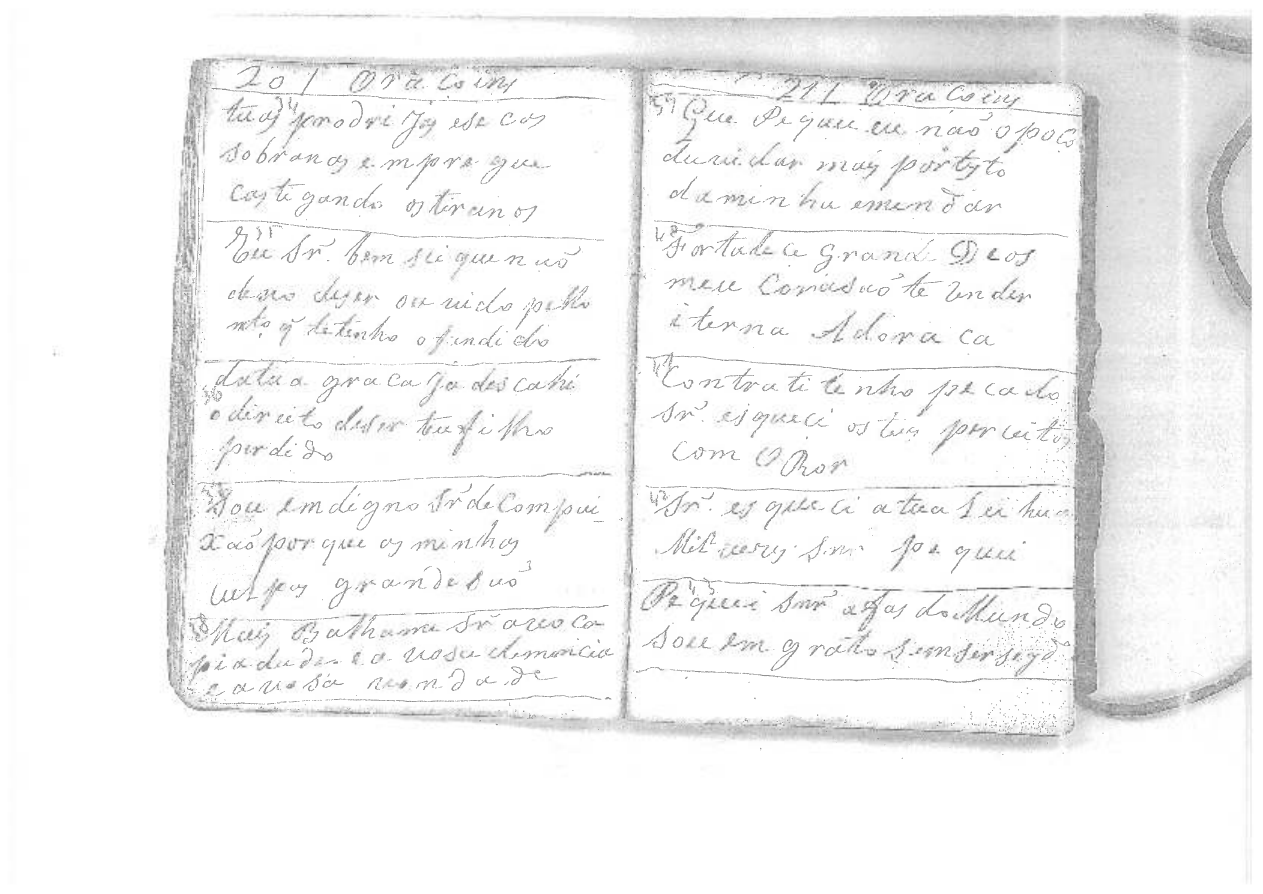 20 / Oracoins
tuas prodrijos esecas
sobranas empre que
castegando ostiranos
Eu Sr. bem sei quenaõ
devo deser ouvido pello
mto q̃ tetenho ofendido
datua graca ja descahi
odireito deser teu filho
perdido
37 Sou emdigno Sr. de Compai-
xaõ porque as minhas
culpas grande saõ
38 Mais Sr.
piadade e a vosa clemencia
e avosa
21 / Oracoins
39 Que Pequei eu naõ o poço
duvidar mais por isto
daminha emendar
40 Fortalece Grande Deos
meu Corasaõ te Render
iterna Adoraca
41 Contrati tenho pecado
Sr. esqueci os tus perceitos
com O Ror
42 Sr. esqueci atua Lei hua
Mil vezes Snr pequei
43 Pequei Snr do Mundo
sou emgrato